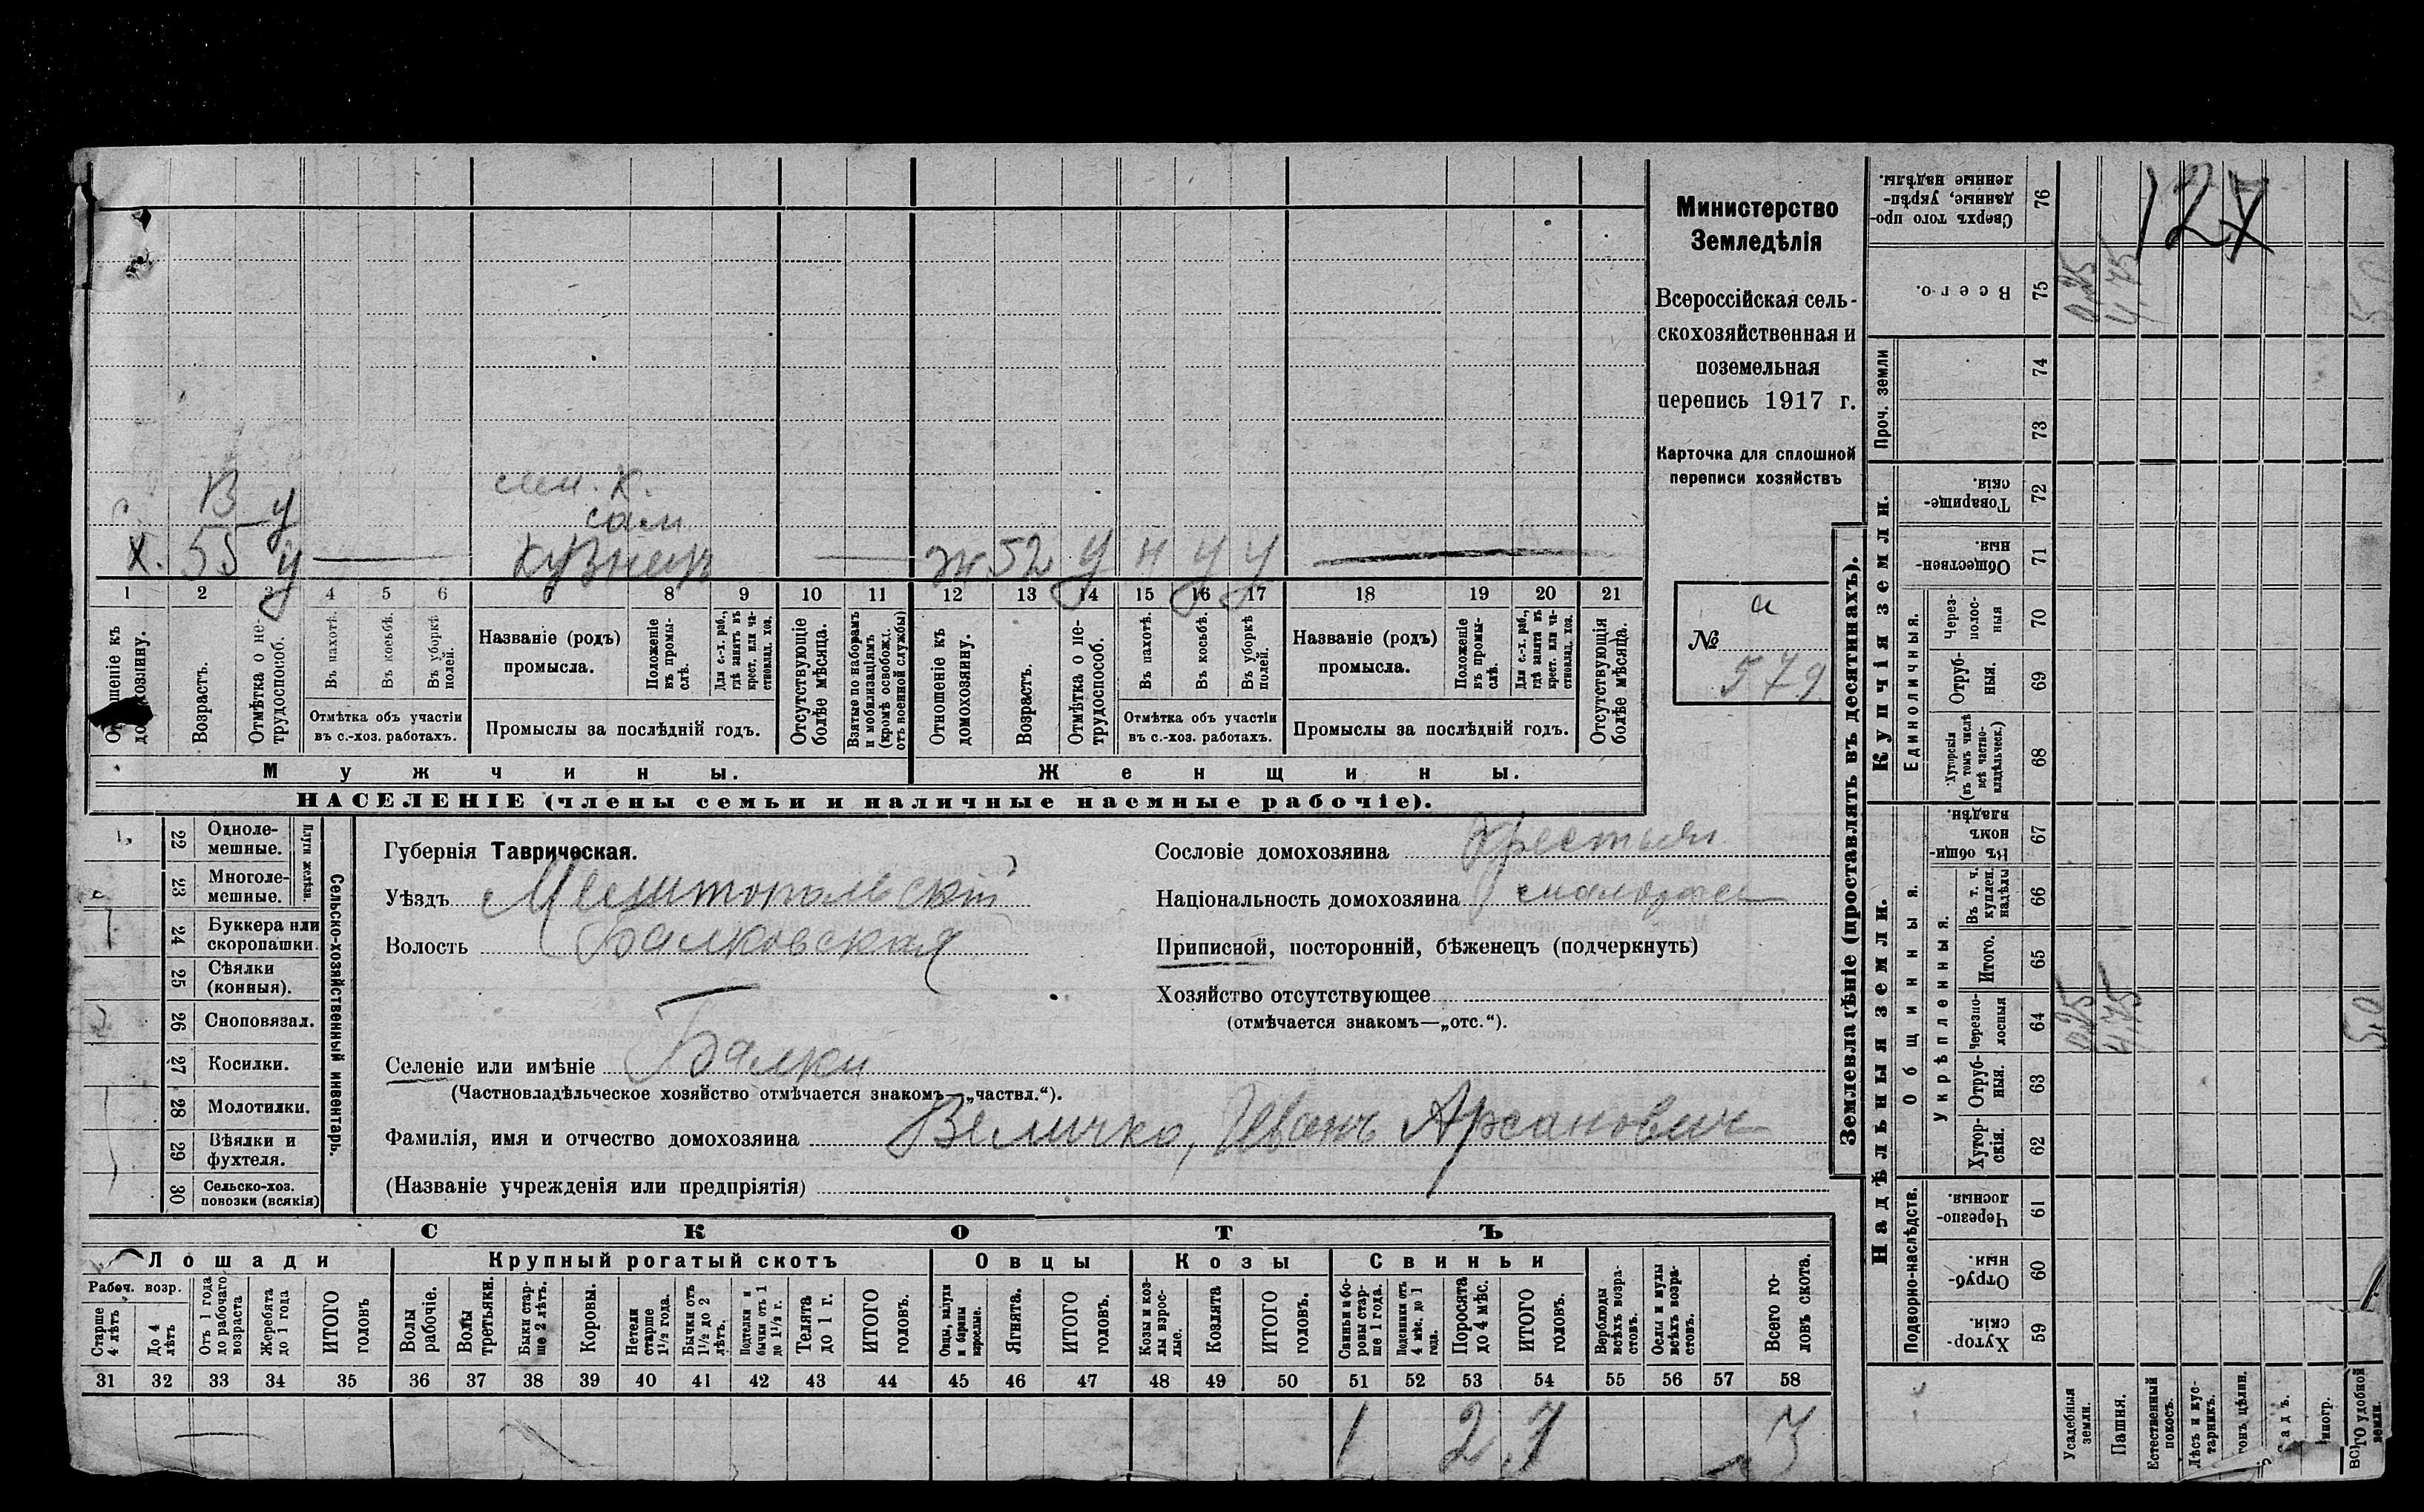 Министерство
Земледѣлія
Всероссійская сель-
скохозяйственная и
поземельная
перепись 1917 г.
Карточка для сплошной
переписи хозяйствъ
№
а
579
сам
Х. 55 у кузнецъ
ж. 52 у н у у
1 2 3 4 5 6 7 8 9 10 11 12 13 14 15 16 17 18 19 20 21
Отношеніе къ домохозяину.
Возрастъ.
Отмѣтка о нетрудоспособ.
Въ пахотѣ.
Въ косьбѣ.
Въ уборкѣ полей.
Отмѣтка объ участіи
въ с.-хоз. работахъ.
Названіе (родъ)
промысла.
Положеніе въ промыслѣ.
Для с.-х. раб., гдѣ занятъ въ крест. или частновлад. хоз.
Промыслы за послѣдній годъ.
Отсутствующіе болѣе мѣсяца.
Взятые по наборамъ и мобилизаціямъ (кромѣ освобожд. отъ военной службы)
Отношеніе къ домохозяину.
Возрастъ.
Отмѣтка о нетрудоспособ.
Въ пахотѣ.
Въ косьбѣ.
Въ уборкѣ полей.
Отмѣтка объ участіи
въ с.-хоз. работахъ.
Названіе (родъ)
промысла.
Положеніе въ промыслѣ.
Для с.-х. раб., гдѣ занята въ крест. или частновлад. хоз.
Промыслы за послѣдній годъ.
Отсутствующія болѣе мѣсяца.
Мужчины.
Женщины.
НАСЕЛЕНІЕ (члены семьи и наличные наемные рабочіе).
22 Одноле-
мешные.
23 Многоле-
мешные.
Плуги желѣзн.
24 Буккера или
скоропашки.
25 Сѣялки
(конныя).
26 Сноповязал.
27 Косилки.
28 Молотилки.
29 Вѣялки и
фухтеля.
30 Сельско-хоз.
повозки (всякія)
Сельско-хозяйственный инвентарь.
Губернія Таврическая.
Уѣздъ Мелитопольскій
Волость Балковская
Селеніе или имѣніе Балки
(Частновладѣльческое хозяйство отмѣчается знакомъ—„частвл.“).
Фамилія, имя и отчество домохозяина Величко, Иванъ Арсанович
(Названіе учрежденія или предпріятія)
Сословіе домохозяина Крестьян
Національность домохозяина малорос
Приписной, посторонній, бѣженецъ (подчеркнуть)
Хозяйство отсутствующее
(отмѣчается знакомъ—„отс.“).
СКОТЪ
Лошади
Крупный рогатый скотъ
Овцы
Козы
Свиньи
Рабоч. возр.
Старше 4 лѣтъ
До 4 лѣтъ
Отъ 1 года до рабочаго возраста
Жеребята до 1 года
ИТОГО головъ
Волы рабочіе.
Волы третьяки.
Быки старше 2 лѣтъ.
Коровы.
Нетели старше 1½ года.
Бычки отъ 1½ до 2 лѣтъ.
Подтелки и бычки отъ 1 до 1½ г.
Телята до 1 г.
ИТОГО головъ.
Овцы, валухи и бараны взрослые.
Ягнята.
ИТОГО головъ.
Козы и козлы взрослые.
Козлята
ИТОГО головъ.
Свиньи и боровы старше 1 года.
Подсвинки отъ 4 мѣс. до 1 года.
Поросята до 4 мѣс.
ИТОГО головъ.
Верблюды всѣхъ возрастовъ.
Ослы и мулы всѣхъ возрастовъ.
Всего головъ скота.
31 32 33 34 35 36 37 38 39 40 41 42 43 44 45 46 47 48 49 50 51 52 53 54 55 56 57 58
1 2 3 3
Землевладѣніе (проставлять въ десятинахъ).
Купчія земли.
Надѣльныя земли.
Проч. земли
Единоличныя.
Общинныя.
Укрѣпленныя.
Подворно-наслѣдств.
Сверхъ того проданные, укрѣпленные надѣлы. 76
Всего. 75 0,25 4,75 5,0
74
73
Товарищескія. 72
Общественныя. 71
Черезполосныя 70
Отрубныя. 69
Хуторскія (въ томъ числѣ всѣ частновладѣльческ.) 68
Въ общинномъ владѣн. 67
Въ т. ч. куплен. надѣлы 66
Итого. 65
Черезполосныя 64 0,25 4,75 5,0
Отрубныя. 63
Хуторскія. 62
Черезполосныя. 61
Отрубныя. 60
Хуторскія. 59
Усадебныя земли.
Пашня.
Естественный покосъ.
Лѣсъ и кустарникъ.